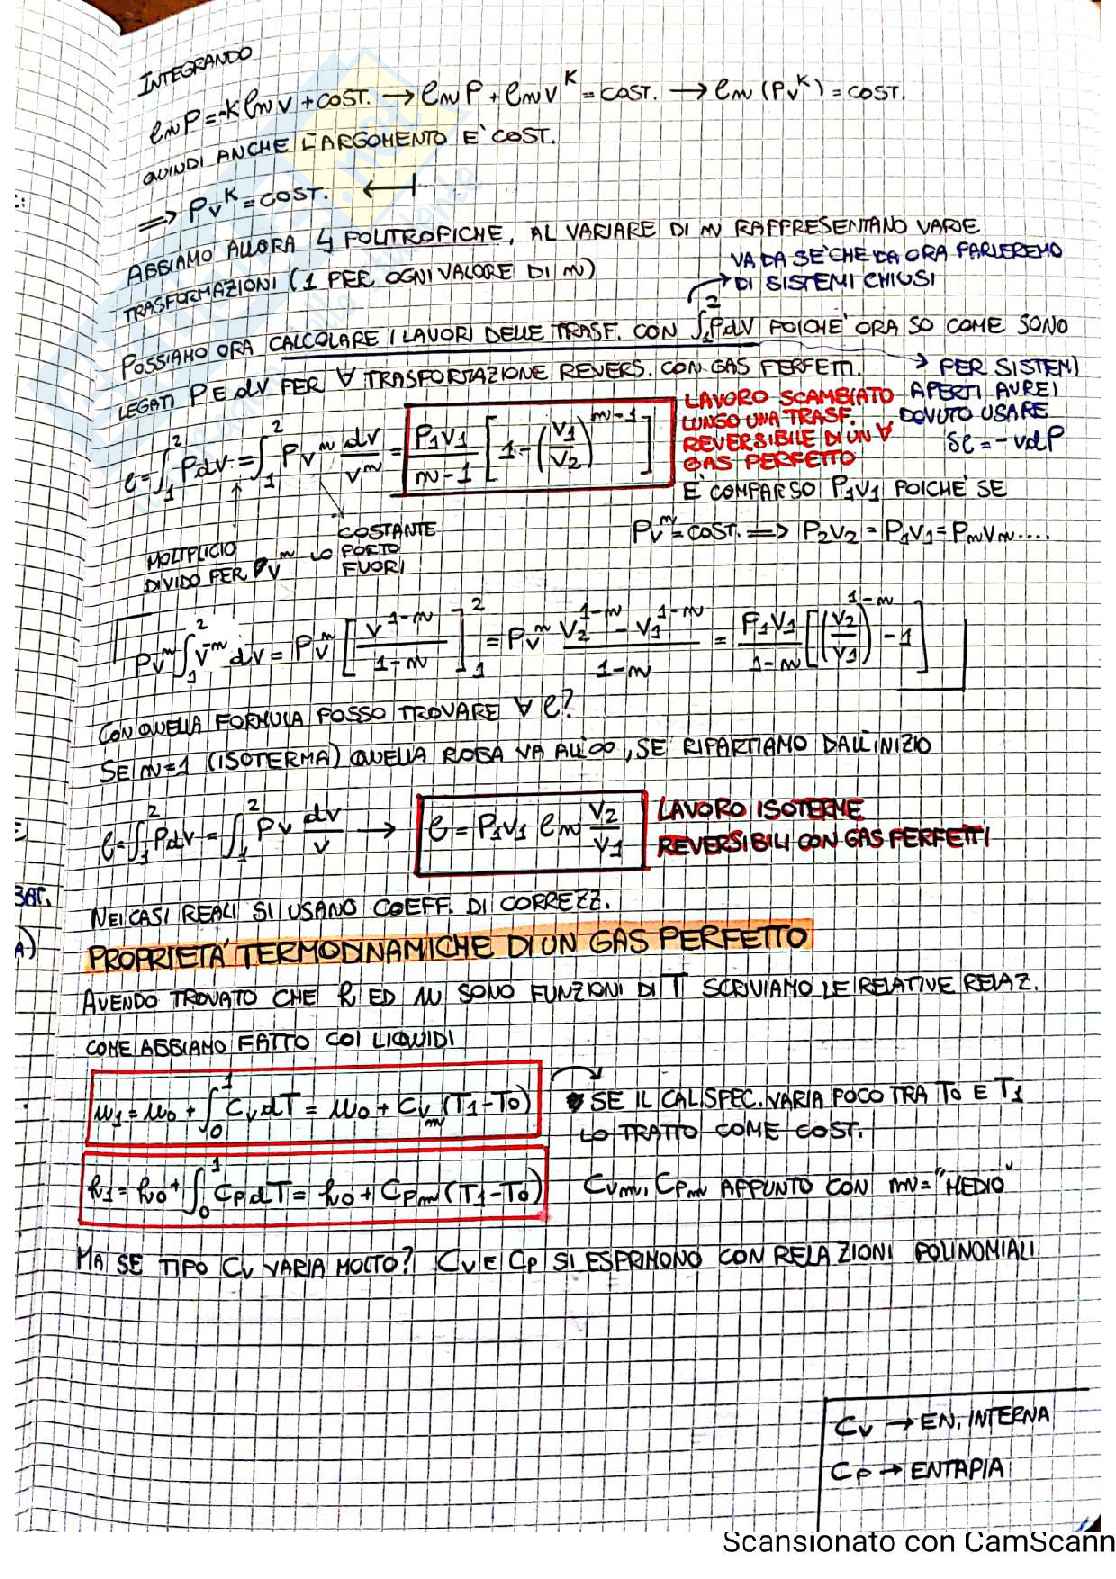 INTEGRANDO
ln P = -K ln v + COST. → ln P + ln v^K = COST. → ln (Pv^K) = COST.
QUINDI ANCHE L'ARGOMENTO E' COST.
⇒ Pv^K = COST. ←
ABBIAMO ALLORA 4 POLITROPICHE, AL VARIARE DI m RAPPRESENTANO VARIE
TRASFORMAZIONI (1 PER OGNI VALORE DI m)
VA DA SE' CHE DA ORA PARLEREMO
DI SISTEMI CHIUSI
POSSIAMO ORA CALCOLARE I LAVORI DELLE TRASF. CON ∫₁² Pdv POICHE' ORA SO COME SONO
LEGATI P E dv PER ∀ TRASFORTAZIONE REVERS. CON GAS PERFETTI.
→ PER SISTEMI
APERTI AVREI
DOVUTO USARE
δl = -vdP
l = ∫₁² Pdv = ∫₁² Pv^m dv/v^m = P₁v₁/(m-1) [1-(v₁/v₂)^(m-1)]
LAVORO SCAMBIATO
LUNGO UNA TRASF.
REVERSIBILE DI UN ∀
GAS PERFETTO
E' COMPARSO P₁v₁ POICHE' SE
Pv^m = COST. ⇒ P₂v₂ = P₁v₁ = Pmvm....
MOLTIPLICO
DIVIDO PER Pv^m
COSTANTE
LO PORTO
FUORI
Pv^m ∫₁² v^-m dv = Pv^m [v^(1-m)/(1-m)]₁² = Pv^m (v₂^(1-m) - v₁^(1-m))/(1-m) = P₁v₁/(1-m) [(v₂/v₁)^(1-m) - 1]
CON QUELLA FORMULA POSSO TROVARE ∀ l?
SE m=1 (ISOTERMA) QUELLA ROBA VA ALL'∞, SE RIPARTIAMO DALL'INIZIO
l = ∫₁² Pdv = ∫₁² Pv dv/v → l = P₁v₁ ln v₂/v₁
LAVORO ISOTERME
REVERSIBILI CON GAS PERFETTI
NEI CASI REALI SI USANO COEFF. DI CORREZZ.
PROPRIETA' TERMODINAMICHE DI UN GAS PERFETTO
AVENDO TROVATO CHE h ED u SONO FUNZIONI DI T SCRIVIAMO LE RELATIVE RELAZ.
COME ABBIAMO FATTO COI LIQUIDI
u₁ = u₀ + ∫₀¹ CvdT = u₀ + Cvm (T₁-T₀)
SE IL CAL. SPEC. VARIA POCO TRA T₀ E T₁
LO TRATTO COME COST.
h₁ = h₀ + ∫₀¹ CpdT = h₀ + Cpm (T₁-T₀)
Cvm, Cpm APPUNTO CON m = "MEDIO"
MA SE TIPO Cv VARIA MOLTO? Cv E Cp SI ESPRIMONO CON RELAZIONI POLINOMIALI
Cv → EN. INTERNA
Cp → ENTAPIA
Scansionato con CamScann